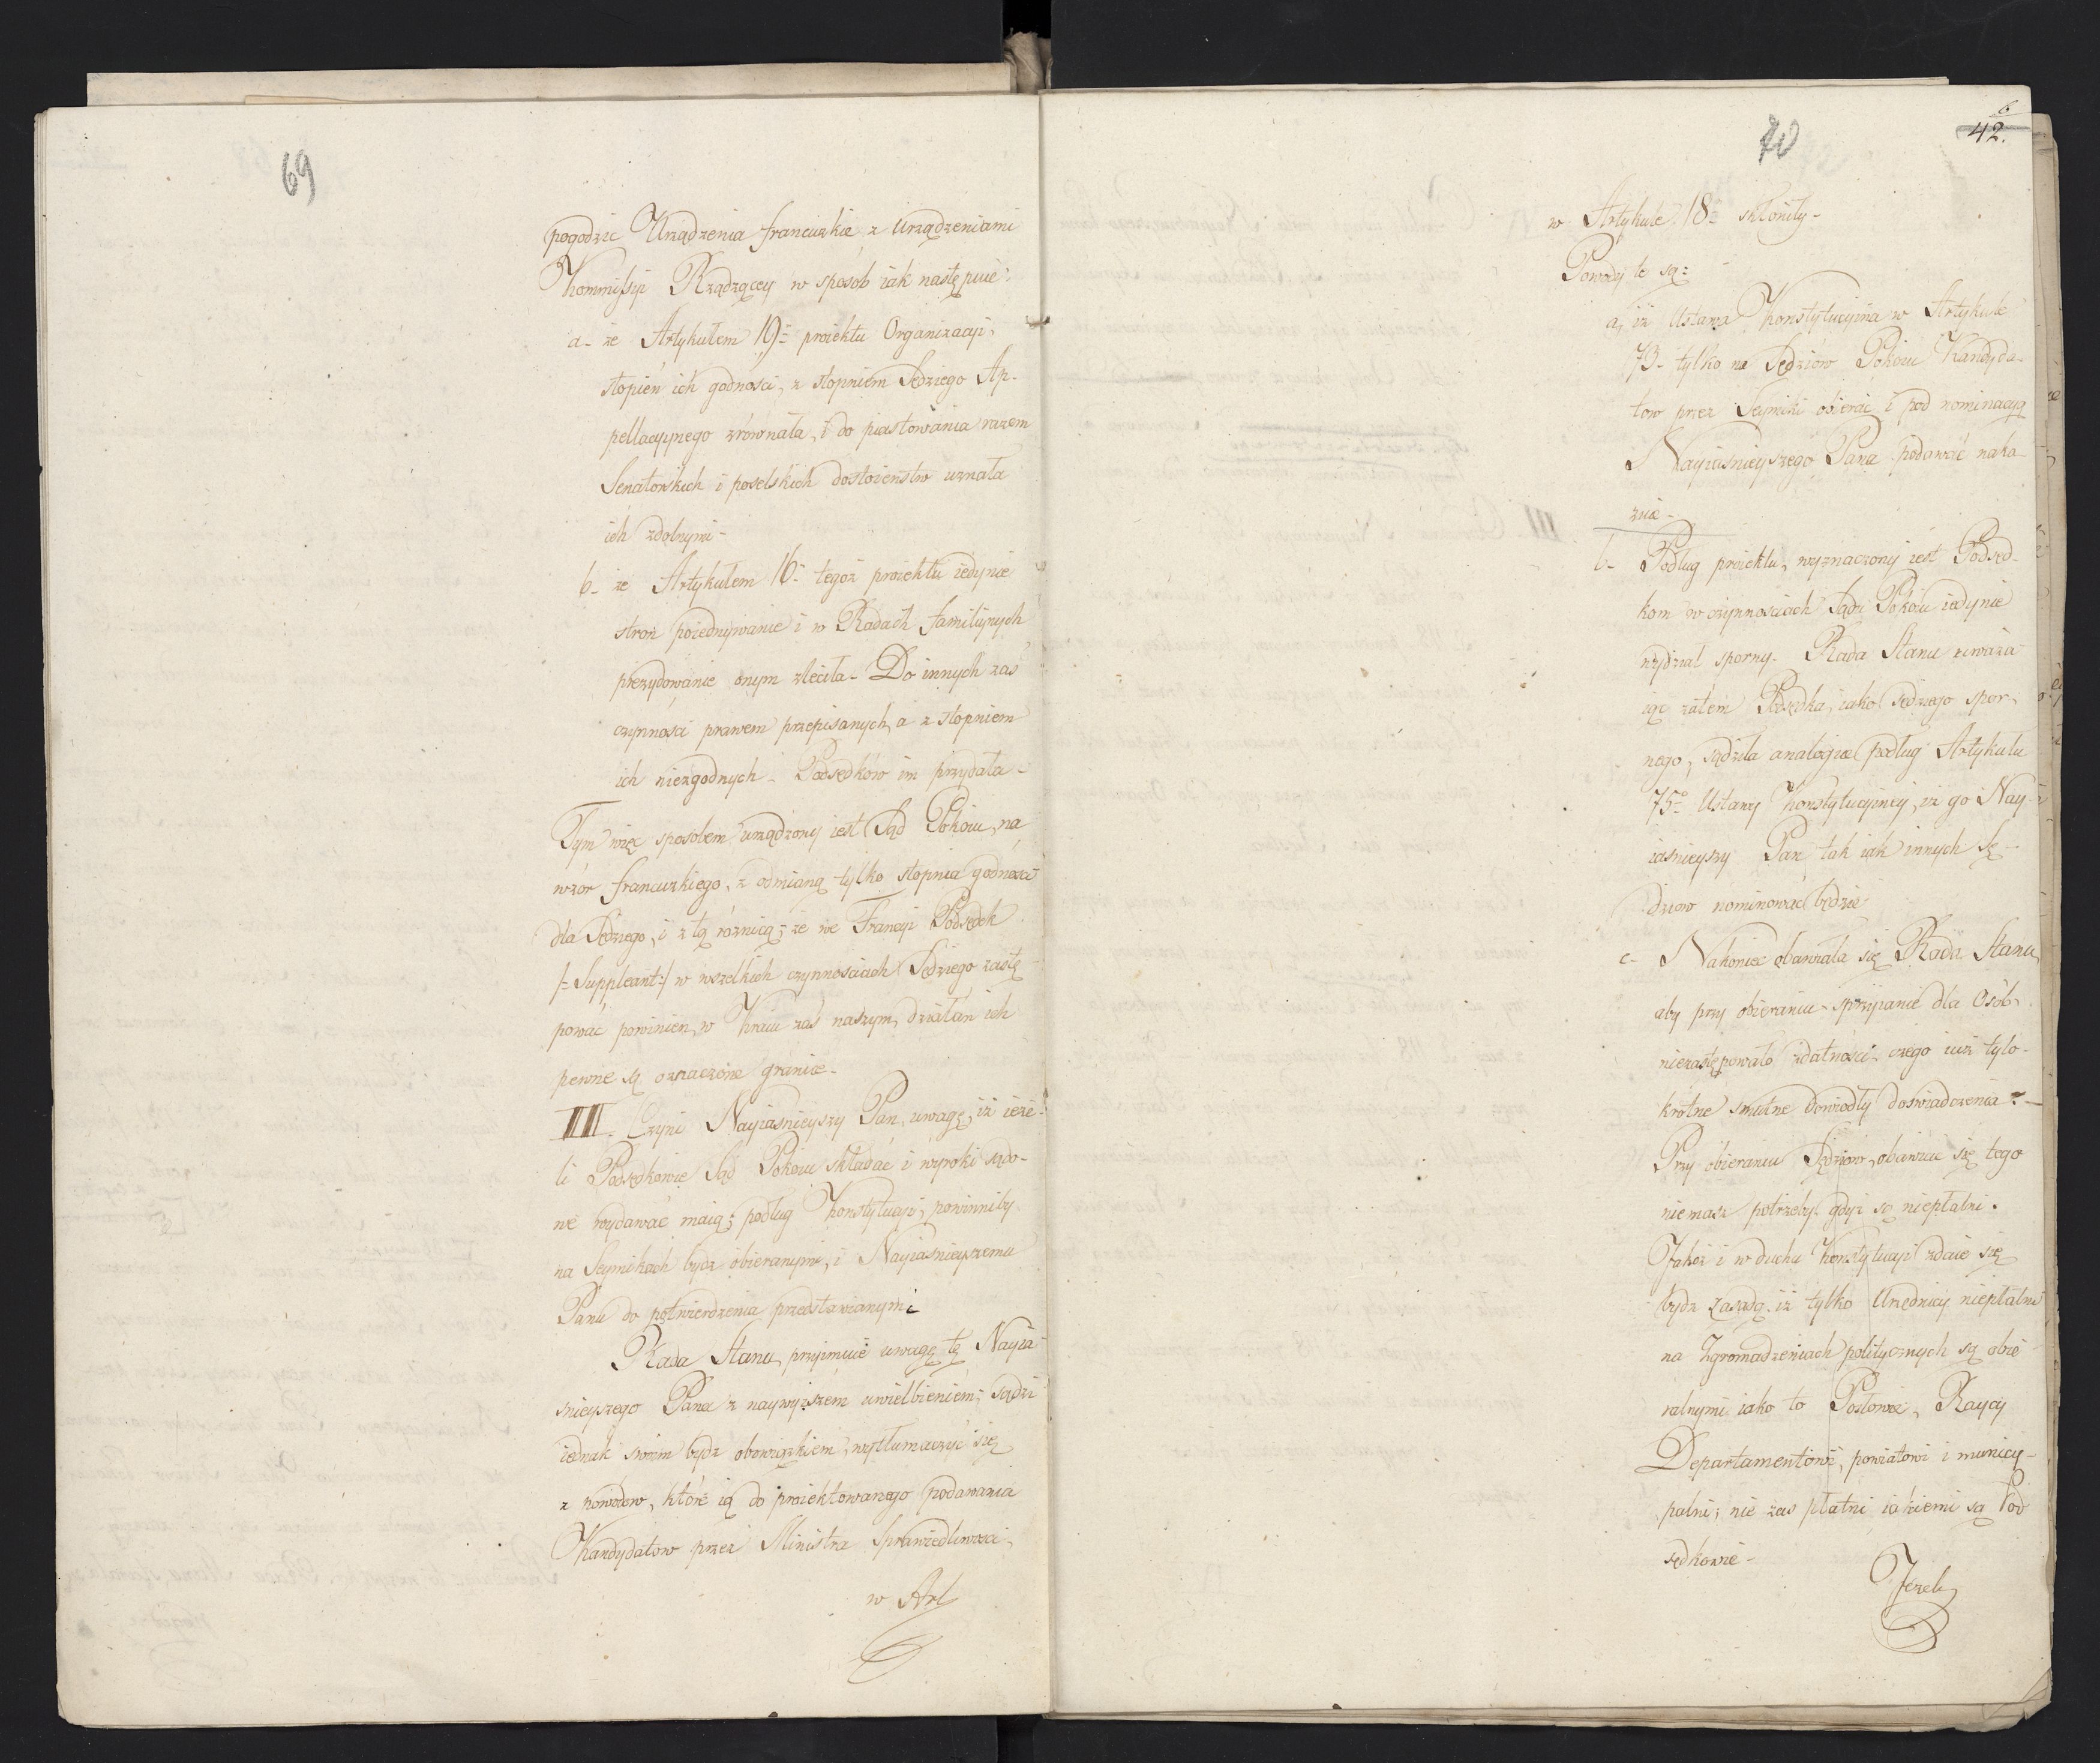 69
pogodzic Urządzenia francuzkie z Urządzeniami
Kommissyi Rządzącey w sposob iak następuie:
a- że Artykułem 19= proiektu Organizacyi,
stopień ich godności, z stopniem Sędziego Ap-
pellacyinego zrównała, i do piastowania razem
Senatorskich i poselskich dostoieństw uznała
ich zdolnymi-
b- że Artykułem 16= tegoż proiektu iedynie
stron poiednywanie i w Radach familiynych
prezydowanie onym zleciła- Do innych zaś
czynności prawem przepisanych, a z stopniem
ich niezgodnych- Podsędków im przydała-
Tym więc sposobem urządzony iest Sąd Pokoiu, na
wzór francuzkiego, z odmianą tylko stopnia godności
dla Sędziego, i z tą różnicą; że we Francyi Podsędek
/=Suppleant=/ w wszelkich czynnościach Sędziego zastę-
pować powinien, w Kraiu zaś naszym, działań ich
pewne są oznaczone granice-
III. Czyni Nayiaśnieyszy Pan, uwagę, iż ieże-
li Podsędkowie Sąd Pokoiu składać i wyroki sądo-
we wydawać maią; podług Konstytucyi, powinniby
na Seymikach bydz obieranymi, i Nayiaśnieyszemu
Panu do potwierdzenia przedstawianymi
Rada Stanu, przyimuie uwagę tę Nayia-
śnieyszego Pana z naywyższém uwielbieniém; sądzi
iednak swoim bydz obowiązkiem, wytłumaczyć się
z powodow, które ią do proiektowanego podawania
Kandydatow przez Ministra Sprawiedliwości,
w Art
70
6
42.
w Artykule 18= skłoniły-
Powody te są:
a, iż Ustawa Konstytucyina w Artykule
73- tylko na Sędziów Pokoiu Kandyda-
tow przez Seymiki obierać i pod nominacyą
Nayiaśnieyszego Pana podawać naka-
zuie-
b- Podług proiektu, wyznaczony iest Podsęd-
kom w czynnościach Sądu Pokoiu iedynie
wydział sporny. Rada Stanu uważa-
iąc zatém Podsędka, iako sędziego spor-
nego, sądziła analogicæ podług Artykułu
75º= Ustawy Konstytucyiney, iż go Nay-
iaśnieyszy Pan tak iak innych Sę-
dziow nominować będzie
c- Nakoniec obawiała się Rada Stanu,
aby przy obieraniu- sprzyianie dla Osób,
niezastępowało zdatności- czego iuż tylo-
krotne smutne dowiodły doświadczenia.-
Przy obieraniu Sędziow, obawiac się tego
niemasz potrzeby gdyż są niepłatni.
Jakoż i w duchu Konstytucyi zdaie się
bydz zasadą, iż tylko Urzędnicy niepłatni
na Zgromadzeniach politycznych są obie-
ralnymi iako to Posłowie, Raycy
Departamentowi, powiatowi i municy-
palni; nie zas płatni iakiemi są Pod
sędkowie-
Jeżeli